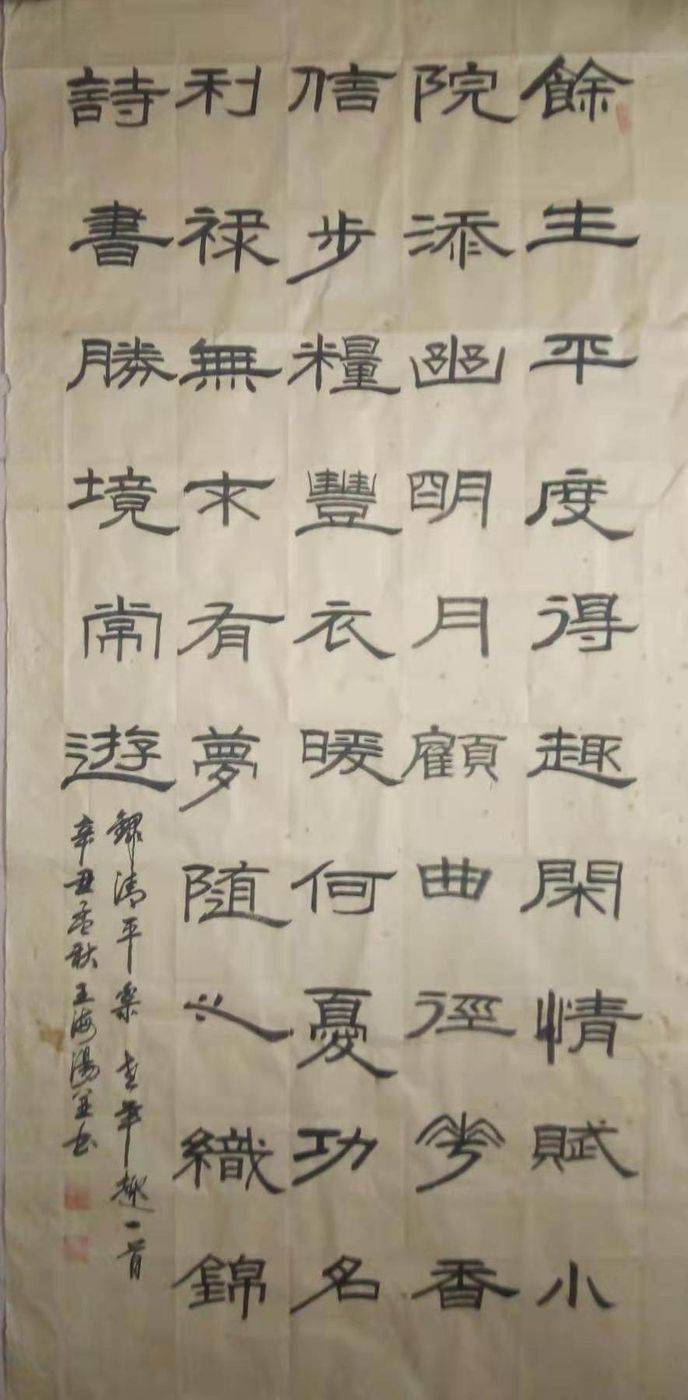 餘生平度得趣閑情賦小
院添幽明月顧曲徑花香
信步糧豐衣暖何憂功名
利祿無求有夢隨心織錦
詩書勝境常遊
錄清平樂老年趣一首
辛丑孟秋王海湯並書